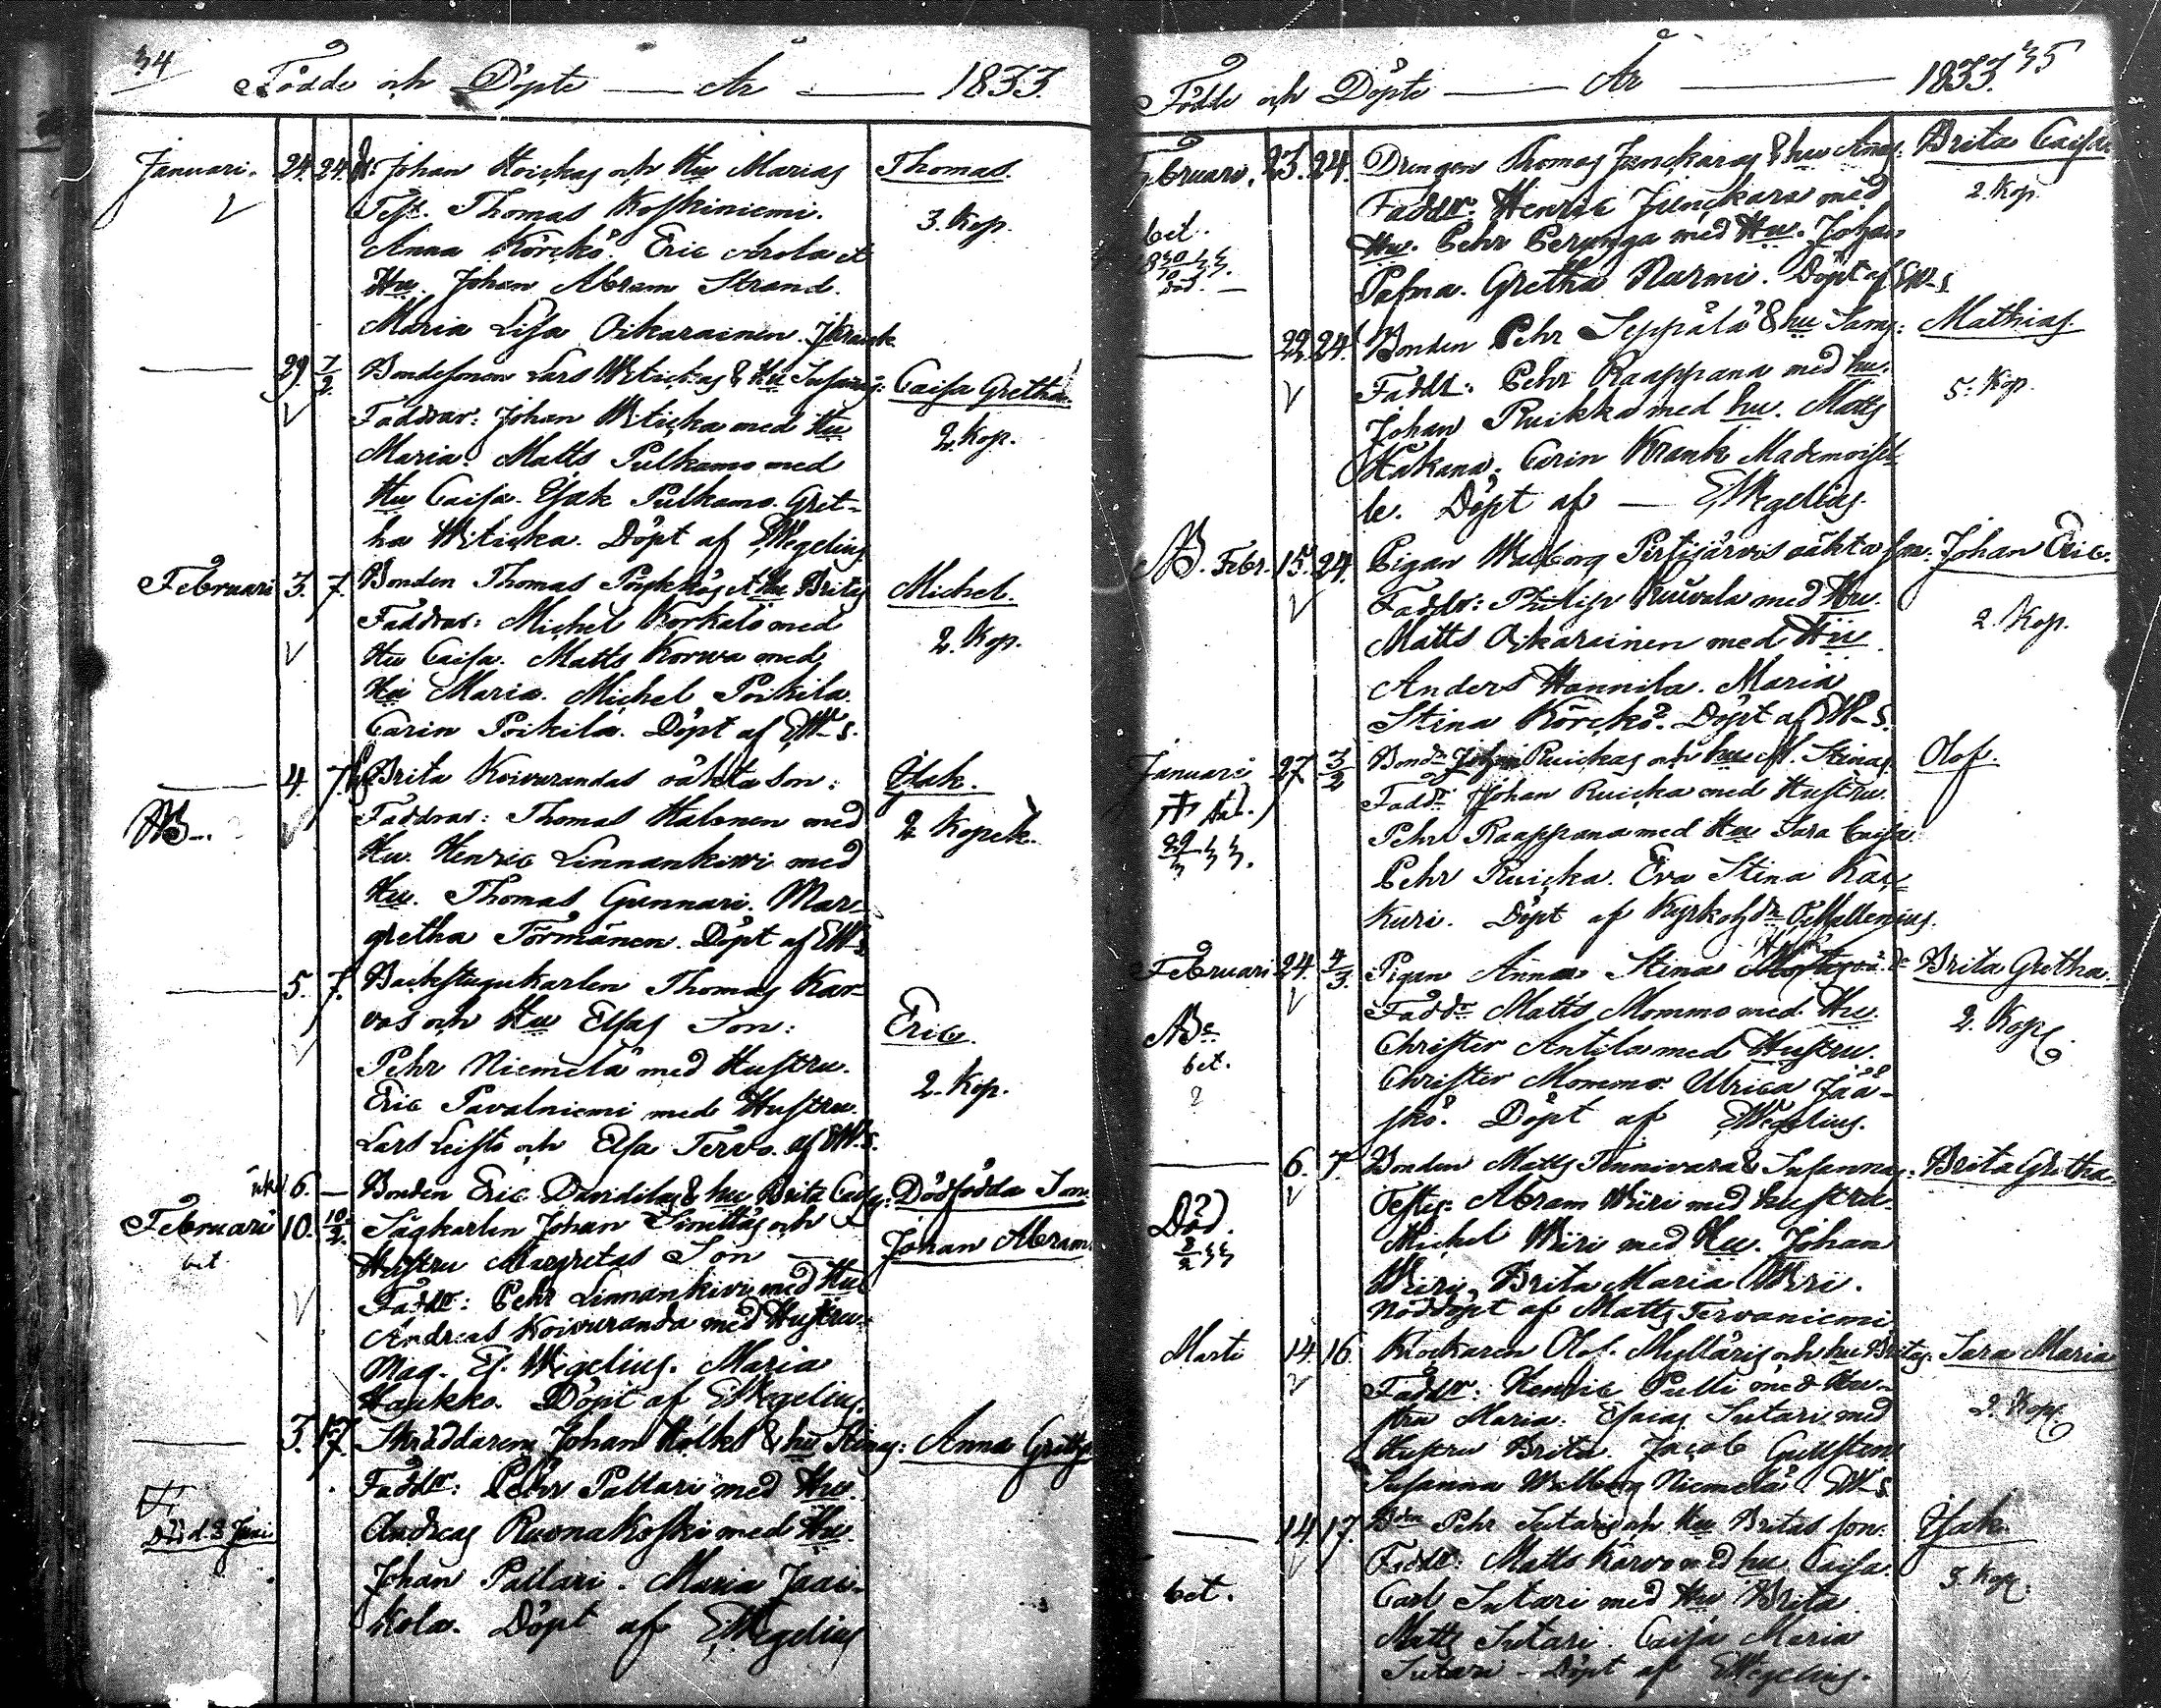 34
Födde och Döpte — År — 1833.
Januari. 24. 24. Johan Koickas och Hu Marias Thomas.
Test. Thomas Koskiniemi. 3. Kop.
Anna Körckö. Eric Arola et
Hu. Johan Abram Strand.
Maria Lisa Oikarainen.
29. 7/2. Bondesonen Lars Witickas & Hu Caisa Gretha.
Faddrar: Johan Witicka med Hu
Maria. Matts Pulkamo med 2. Kop.
Hu Caisa. Isak Pulkamo. Gret-
ha Witicka. Döpt af EWegelius
Februari 3. 7. Bonden Thomas et Hu Britas Michel.
Faddrar: Michel Korkalo med
Hu Caisa. Matts Korwa med 2. Kop.
Hu Maria. Michel Poikila.
Carin Poikila. Döpt af EW-s.
4. 7. Brita Koivurandas oäkta Son: Isak.
Faddrar: Thomas Halonen med 2 Kopek.
Hu. Henric Linnankiwi med
Hu. Thomas Gunnari. Mar-
gretha Törmänen. Döpt af EW-s
5. 7. Backstugukarlen Thomas Kar-
vos och Hu Elsas Son: Eric.
Pehr Niemelä med Hustru.
Eric Pavalniemi med Hustru. 2. Kop.
Lars Leisto och Elsa Tervo. af EW-s.
6. — Bonden Eric Davidilas & hu Brita Dödfödda Son.
Februari 10. 10/2. Sågkarlen Johan och Johan Abram.
bet Hustru Margretas Son
Faddr: Pehr Linnankivi med Hu
Andreas Koivuranda med Hustru.
Mag. Es. Wegelius. Maria
Haukko. Döpt af EWegelius.
3. 17. Skräddaren Johan Hölks & hu Stinas: Anna
Faddr: Pehr Pallari med Hu.
Död d. 3 Andreas Ruonakoski med Hu.
Johan Pallari. Maria Jaai-
kola. Döpt af EWegelius
35
Födde och Döpte — År — 1833.
Februari. 23. 24. Drengen Thomas Junckaras & hu Annas: Brita Caisa.
Faddr. Henric Junckara med 2. Kop.
bet. Hu. Pehr Perunga med Hu. Johan
Pasma. Gretha Nurmi. Döpt af EW-s
22. 24. Bonden Pehr Seppälä & hu Saras: Mathias.
Faddr: Pehr Raappana med hu.
Johan Ruikka med hu. Matts 5. Kop.
Hakana. Carin Krank Mademoisel-
le. Döpt af — EWegelius.
Febr. 15. 24. Pigan Walborg Pertijärvis oäkta son. Johan Eric.
Faddr: Philip Kuuvala med Hu.
Matts Oikarainen med Hu. 2. Kop.
Anders Hannila. Maria
Stina Körckö. Döpt af EW-s.
Januari 27. 3/2 Bond. Johan Ruickas och hu M. Stinas Olof.
Faddr Johan Ruicka med Hustru.
Pehr Raappana med Hu Sara Caisa.
Pehr Ruicka. Eva Stina Kar-
kuri. Döpt af
Februari 24. 4/3. Pigan Anna Stina Brita Gretha.
Faddr Matts Mommo med Hu.
Christer Antila med Hustru. 2. Kop.
bet. Christer Mommo. Ulrica Jää-
skö. Döpt af EWegelius.
6. 7. Bonden Matts Tennivara & Susannas: Brita Gretha
Testes: Abram Wiiri med hustru.
Död. Michel Wiiri med Hu. Johan
Wiiri, Brita Maria Wiiri.
Nöddöpt af Matts Tervoniemi
Marti 14. 16. Klockaren Olof. Mylläris och hu Britas Sara Maria
Faddr: Henric Pulli med Hu-
stru Maria. Esaias Sutari med 2. Kop
Hustru Brita. Jacob Gullsten
Susanna Walborg Niemelä. EW-s
14. 17. Bden Pehr Sutaris och Hu Britas son: Isak.
Faddr: Matts Karvo med hu Caisa.
bet. Carl Sutari med Hu Brita 3. Kop.
Matts Sutari. Caisa Maria
Sutari - Döpt af EWegelius.